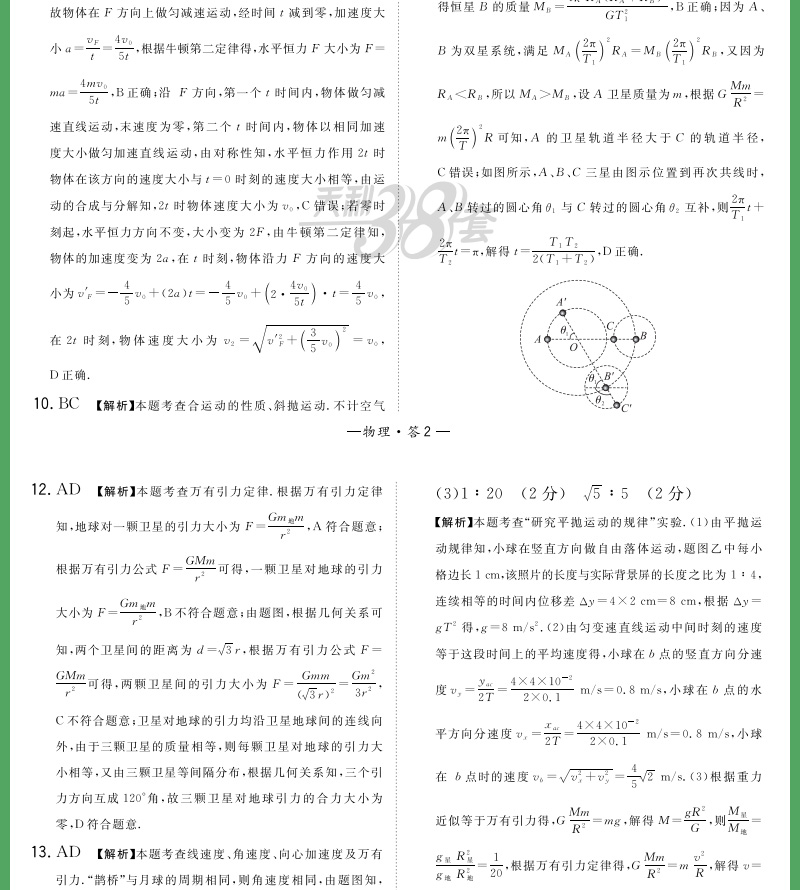 故物体在 F 方向上做匀减速运动,经时间 t 减到零,加速度大
小 a=v_F/t=4v₀/5t,根据牛顿第二定律得,水平恒力 F 大小为 F=
ma=4mv₀/5t,B 正确;沿 F 方向,第一个 t 时间内,物体做匀减
速直线运动,末速度为零,第二个 t 时间内,物体以相同加速
度大小做匀加速直线运动,由对称性知,水平恒力作用 2t 时
物体在该方向的速度大小与 t=0 时刻的速度大小相等,由运
动的合成与分解知,2t 时物体速度大小为 v₀,C 错误;若零时
刻起,水平恒力方向不变,大小变为 2F,由牛顿第二定律知,
物体的加速度变为 2a,在 t 时刻,物体沿力 F 方向的速度大
小为 v′_F=-4/5 v₀+(2a)t=-4/5 v₀+(2·4v₀/5t)·t=4/5 v₀,
在 2t 时刻,物体速度大小为 v₂=√(v′_F²+(3/5 v₀)²)=v₀,
D 正确.
10. BC 【解析】本题考查合运动的性质、斜抛运动.不计空气
得恒星 B 的质量 M_B= GT₁²,B 正确;因为 A、
B 为双星系统,满足 M_A(2π/T₁)²R_A=M_B(2π/T₁)²R_B,又因为
R_A<R_B,所以 M_A>M_B,设 A 卫星质量为 m,根据 G Mm/R²=
m(2π/T)²R 可知,A 的卫星轨道半径大于 C 的轨道半径,
C 错误;如图所示,A、B、C 三星由图示位置到再次共线时,
A、B 转过的圆心角 θ₁ 与 C 转过的圆心角 θ₂ 互补,则 2π/T₁ t+
2π/T₂ t=π,解得 t=T₁T₂/2(T₁+T₂),D 正确.
天利38套
A′
A
θ₁
O
C
B
θ₁
B′
θ₂
C′
—物理·答2—
12. AD 【解析】本题考查万有引力定律.根据万有引力定律
知,地球对一颗卫星的引力大小为 F=Gm地m/r²,A 符合题意;
根据万有引力公式 F=GMm/r² 可得,一颗卫星对地球的引力
大小为 F=Gm地m/r²,B 不符合题意;由题图,根据几何关系可
知,两个卫星间的距离为 d=√3 r,根据万有引力公式 F=
GMm/r² 可得,两颗卫星间的引力大小为 F=Gmm/(√3 r)²=Gm²/3r²,
C 不符合题意;卫星对地球的引力均沿卫星地球间的连线向
外,由于三颗卫星的质量相等,则每颗卫星对地球的引力大
小相等,又由三颗卫星等间隔分布,根据几何关系知,三个引
力方向互成 120°角,故三颗卫星对地球引力的合力大小为
零,D 符合题意.
13. AD 【解析】本题考查线速度、角速度、向心加速度及万有
引力.“鹊桥”与月球的周期相同,则角速度相同,由题图知,
(3)1∶20 (2 分) √5∶5 (2 分)
【解析】本题考查“研究平抛运动的规律”实验.(1)由平抛运
动规律知,小球在竖直方向做自由落体运动,题图乙中每小
格边长 1 cm,该照片的长度与实际背景屏的长度之比为 1∶4,
连续相等的时间内位移差 Δy=4×2 cm=8 cm,根据 Δy=
gT² 得,g=8 m/s².(2)由匀变速直线运动中间时刻的速度
等于这段时间上的平均速度得,小球在 b 点的竖直方向分速
度 v_y=y_ac/2T=4×4×10⁻²/2×0.1 m/s=0.8 m/s,小球在 b 点的水
平方向分速度 v_x=x_ac/2T=4×4×10⁻²/2×0.1 m/s=0.8 m/s,小球
在 b 点时的速度 v_b=√(v_x²+v_y²)=4/5 √2 m/s.(3)根据重力
近似等于万有引力得,G Mm/R²=mg,解得 M=gR²/G,则 M星/M地=
g星/g地 R星²/R地²=1/20,根据万有引力定律得,G Mm/R²=m v²/R,解得 v=